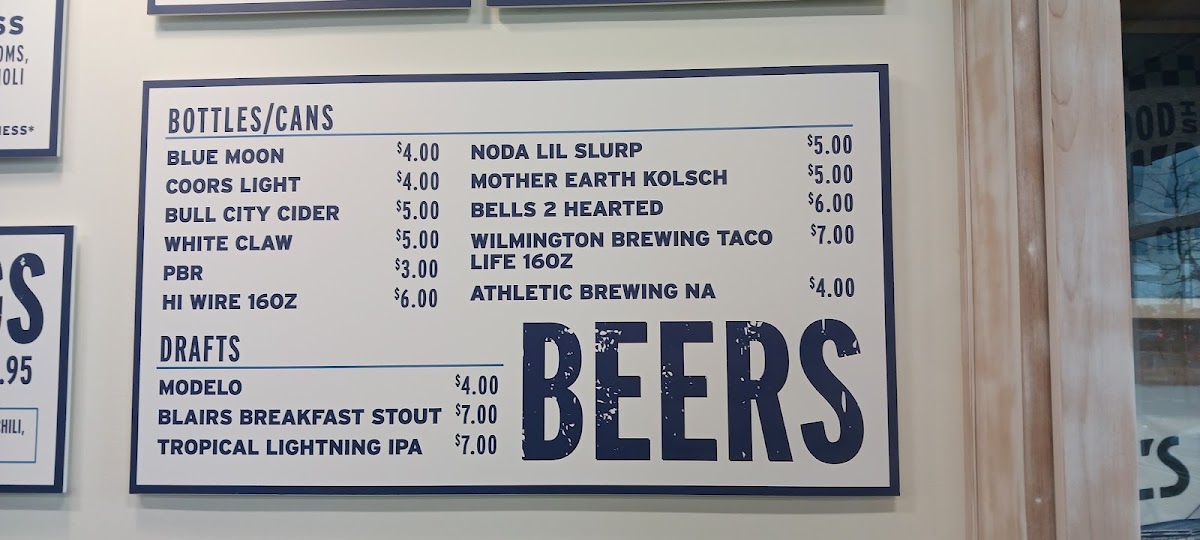 BOTTLES/CANS
BLUE MOON $4.00
COORS LIGHT $4.00
BULL CITY CIDER $5.00
WHITE CLAW $5.00
PBR $3.00
HI WIRE 16OZ $6.00
NODA LIL SLURP $5.00
MOTHER EARTH KOLSCH $5.00
BELLS 2 HEARTED $6.00
WILMINGTON BREWING TACO $7.00
LIFE 16OZ
ATHLETIC BREWING NA $4.00
DRAFTS
MODELO $4.00
BLAIRS BREAKFAST STOUT $7.00
TROPICAL LIGHTNING IPA $7.00
BEERS
.95